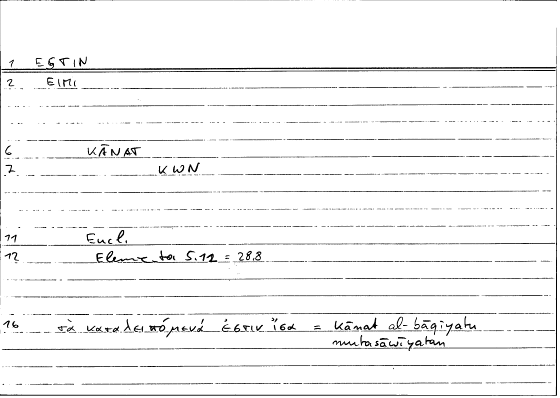 1 ESTIN
2 EIMI
6 KĀNAT
7 KWN
11 Eucl.
12 Elementa 5.12 = 28.8
16 τὰ καταλειπόμενά ἐστιν ἴσα = kānat al-bāqiyatu
mutasāwiyatan